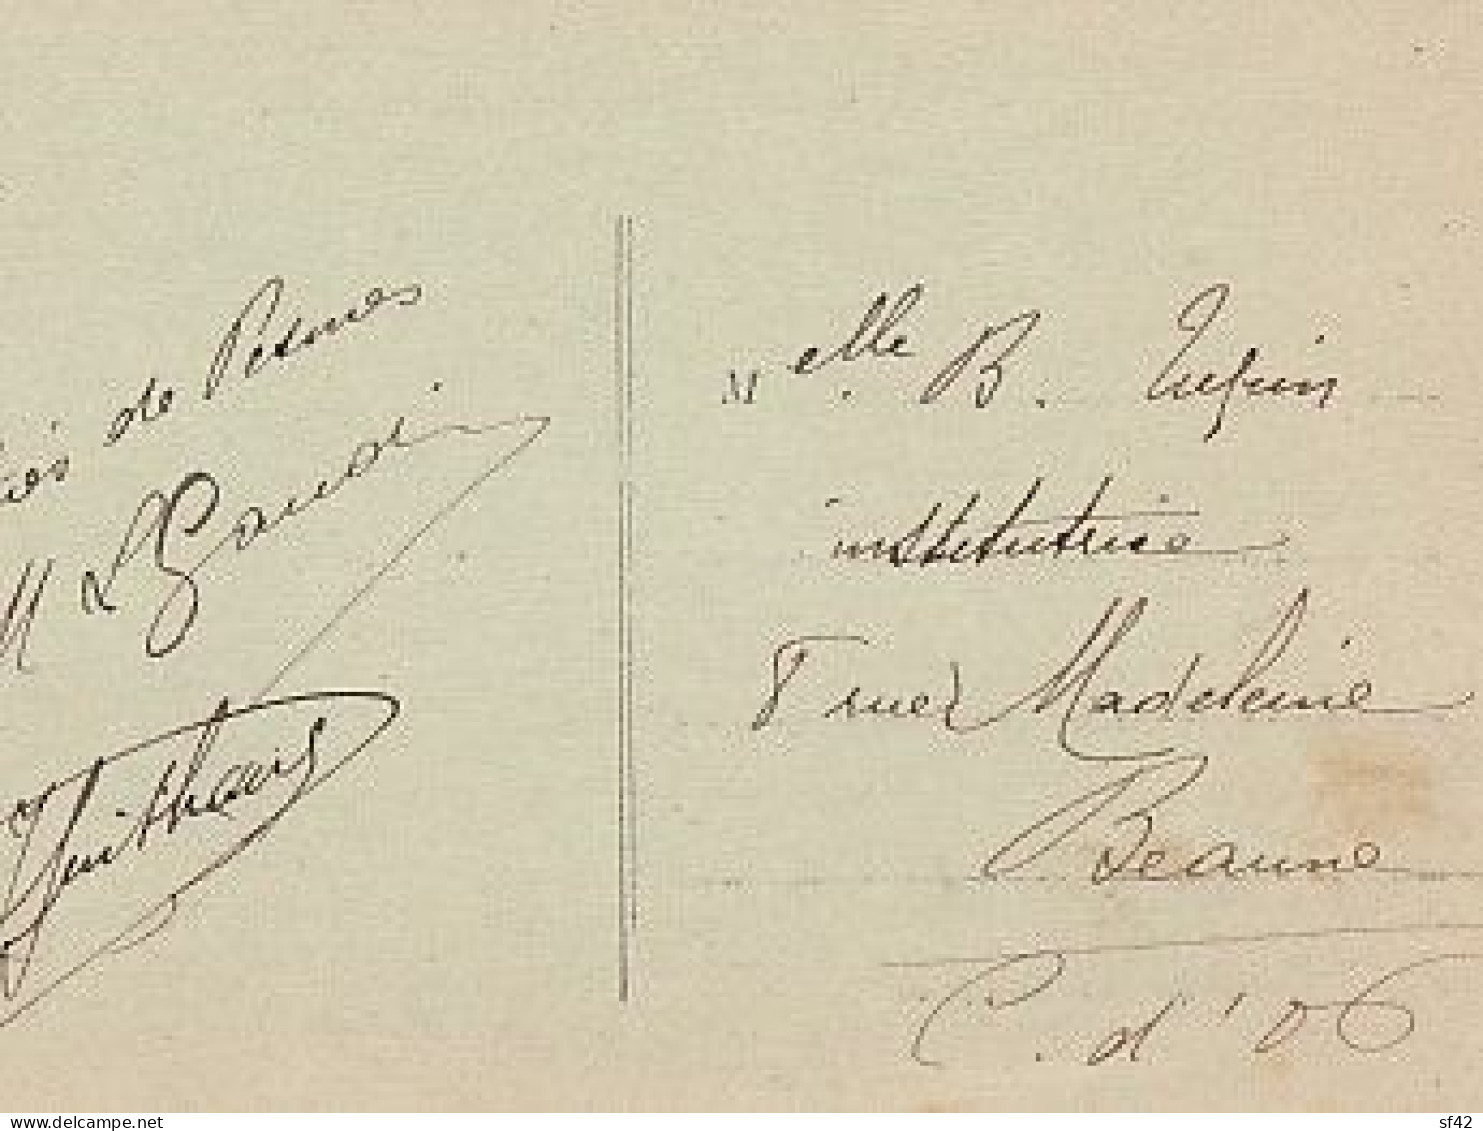 de Pesmes
M L Gaudin
Melle. B. Tupin
institutrice
8 rue Madeleine
Beaune
C. d'Or
www.delcampe.net
sf42